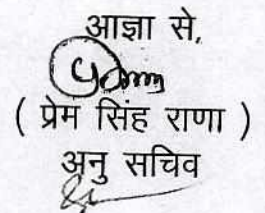 आज्ञा से,
( प्रेम सिंह राणा )
अनु सचिव